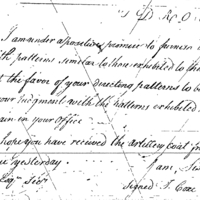 I am under a positive promise to furnish
th patterns similar to those exhibited to the
the favor of your directing patterns to b
our judgment with the patterns exhibited
ain in your Office
hope you have received the artillery coat fro
ne yesterday
I am, Sir
Esqr Sir
Signed T. Coxe